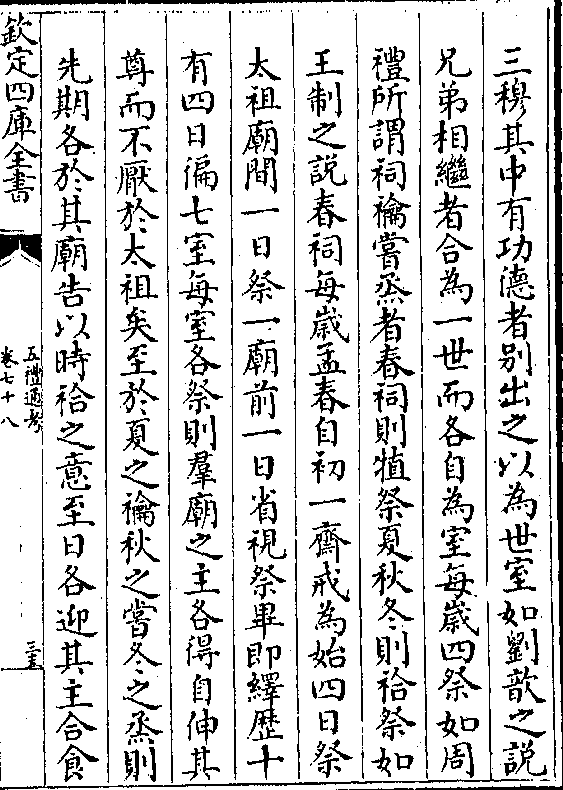 三穆其中有功德者别出之以為世室如劉歆之説
兄弟相繼者合為一世而各自為室每嵗四祭如周
禮所謂祠禴嘗烝者春祠則犆祭夏秋冬則祫祭如
王制之説春祠每嵗孟春自初一齋戒為始四日祭
太祖廟間一日祭一廟前一日省視祭畢即繹歴十
有四日徧七室每室各祭則羣廟之主各得自伸其
尊而不厭於太祖矣至於夏之禴秋之嘗冬之烝則
先期各於其廟告以時祫之意至日各迎其主合食
欽定四庫全書
五禮通考
卷七十八
三五